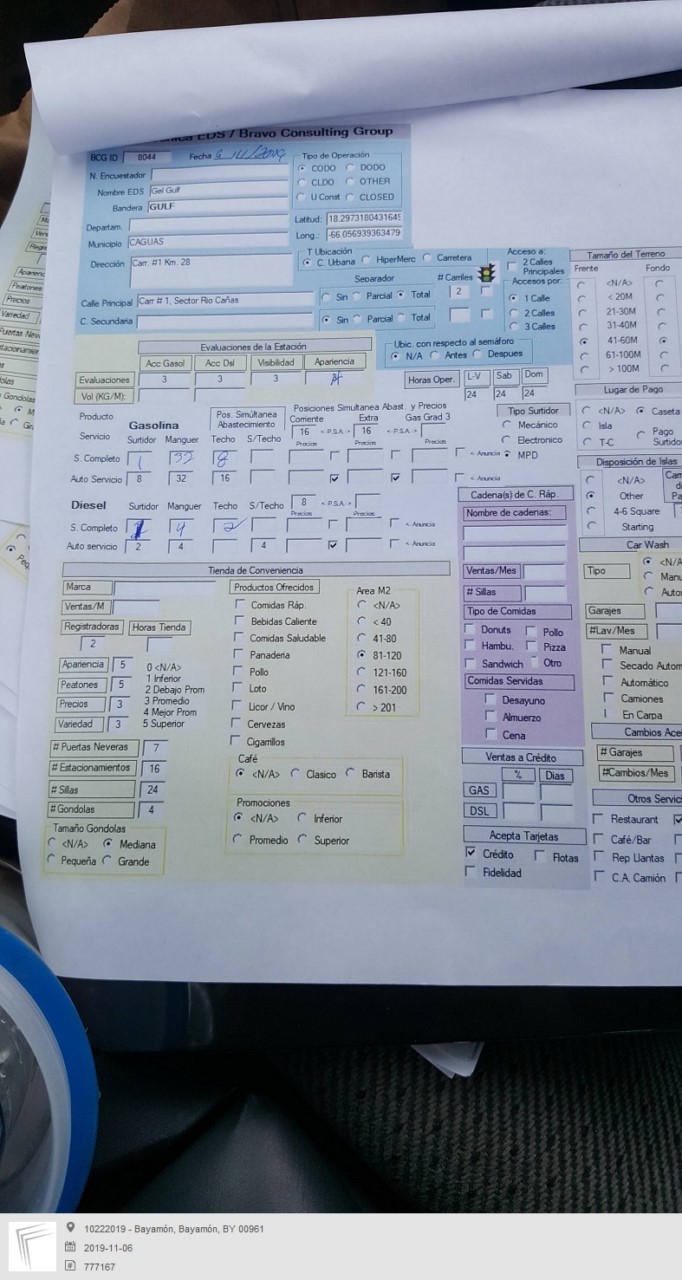 EDS / Bravo Consulting Group
BCG ID 8044 Fecha
Tipo de Operación
CODO DODO
CLDO OTHER
U Const CLOSED
N. Encuestador
Nombre EDS Gel Gulf
Bandera GULF
Departam.
Latitud: 18.2973180431645
Long.: -66.056939363479
Municipio CAGUAS
Dirección Carr. #1 Km. 28
T Ubicación
C. Urbana HiperMerc Carretera
Separador # Carriles
Calle Principal Carr # 1, Sector Rio Cañas Sin Parcial Total 2
C. Secundaria Sin Parcial Total
Acceso a:
2 Calles Principales
Accesos por:
1 Calle
2 Calles
3 Calles
Tamaño del Terreno
Frente Fondo
<N/A>
< 20M
21-30M
31-40M
41-60M
61-100M
> 100M
Evaluaciones de la Estación
Acc Gasol Acc Dsl Visibilidad Apariencia
Evaluaciones 3 3 3
Vol (KG/M):
Ubic. con respecto al semáforo
N/A Antes Despues
Horas Oper. L-V Sab Dom
24 24 24
Lugar de Pago
<N/A> Caseta
Isla Pago
T-C Surtido
Producto Gasolina
Pos. Simultánea Abastecimiento
Posiciones Simultanea Abast. y Precios
Corriente Extra Gas Grad 3
16 < P.S.A > 16 < P.S.A >
Precios Precios Precios
Servicio Surtidor Manguer Techo S/Techo
S. Completo 1 32 8 < Anuncia
Auto Servicio 8 32 16 < Anuncia
Tipo Surtidor
Mecánico
Electronico
MPD
Disposición de Islas
<N/A>
Other
4-6 Square
Starting
Diesel Surtidor Manguer Techo S/Techo 8 < P.S.A >
Precios Precios
S. Completo 4 2 < Anuncia
Auto servicio 2 4 4 < Anuncia
Cadena(s) de C. Ráp.
Nombre de cadenas:
Ventas/Mes
# Sillas
Tipo de Comidas
Donuts Pollo
Hambu. Pizza
Sandwich Otro
Comidas Servidas
Desayuno
Almuerzo
Cena
Ventas a Crédito
% Dias
GAS
DSL
Acepta Tarjetas
Crédito Flotas
Fidelidad
Car Wash
Tipo <N/A
Manu
Auto
Garajes
#Lav/Mes
Manual
Secado Autom
Automático
Camiones
En Carpa
Cambios Ace
# Garajes
#Cambios/Mes
Otros Servic
Restaurant
Café/Bar
Rep Llantas
C.A. Camión
Tienda de Conveniencia
Marca
Ventas/M
Registradoras Horas Tienda
2
Apariencia 5
Peatones 5
Precios 3
Variedad 3
0 <N/A>
1 Inferior
2 Debajo Prom
3 Promedio
4 Mejor Prom
5 Superior
# Puertas Neveras 7
# Estacionamientos 16
# Sillas 24
# Gondolas 4
Tamaño Gondolas
<N/A> Mediana
Pequeña Grande
Productos Ofrecidos
Comidas Ráp.
Bebidas Caliente
Comidas Saludable
Panaderia
Pollo
Loto
Licor / Vino
Cervezas
Cigarrillos
Area M2
<N/A>
< 40
41-80
81-120
121-160
161-200
> 201
Café
<N/A> Clasico Barista
Promociones
<N/A> Inferior
Promedio Superior
10222019 - Bayamón, Bayamón, BY 00961
2019-11-06
777167